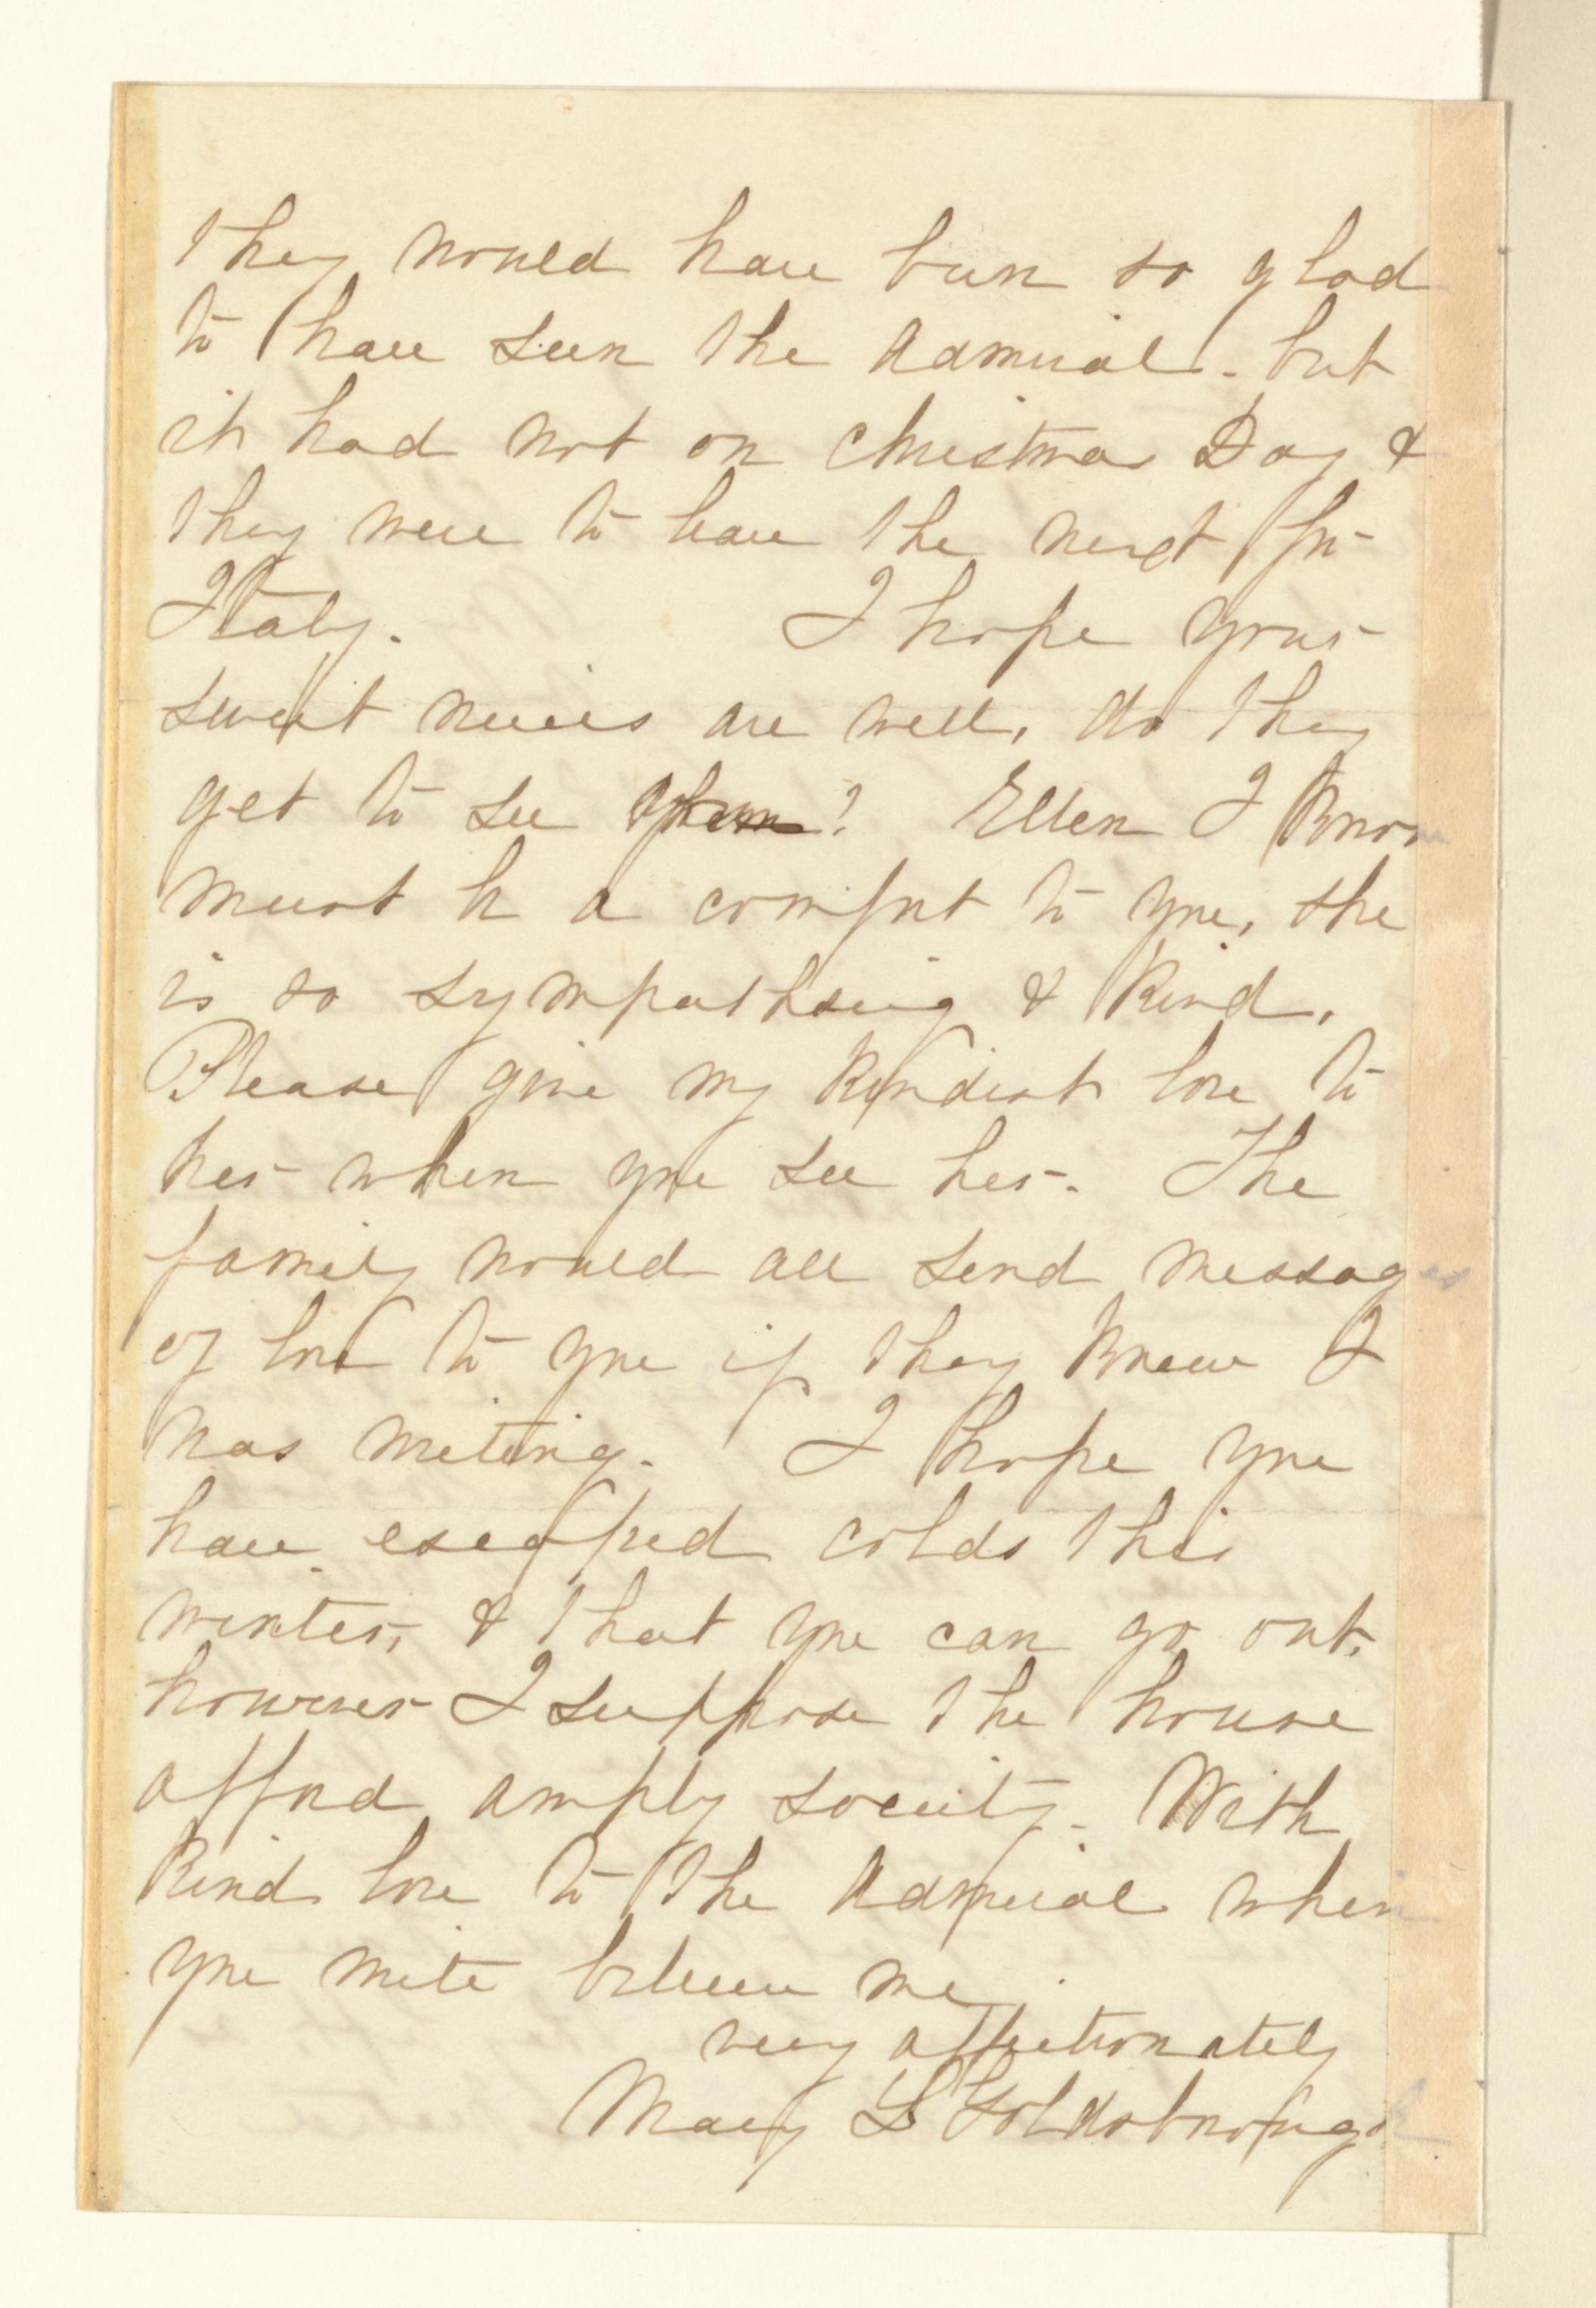 they would have been so glad
to have seen the Admiral. but
it had not on Christmas Day &
they were to leave the next for
Italy. I hope your
sweet nieces are well, do they
get to see you? Ellen I know
must be a comfort to you, she
is so sympathising & kind.
Please give my kindest love to
her when you see her. The
family would all send messages
of love to you if they knew I
was writing. I hope you
have escaped colds this
winter, & that you can go out.
however I suppose the house
afford amply society. With
kind love to the Admiral when
you write believe me
very affectionately
Mary L Goldsborough